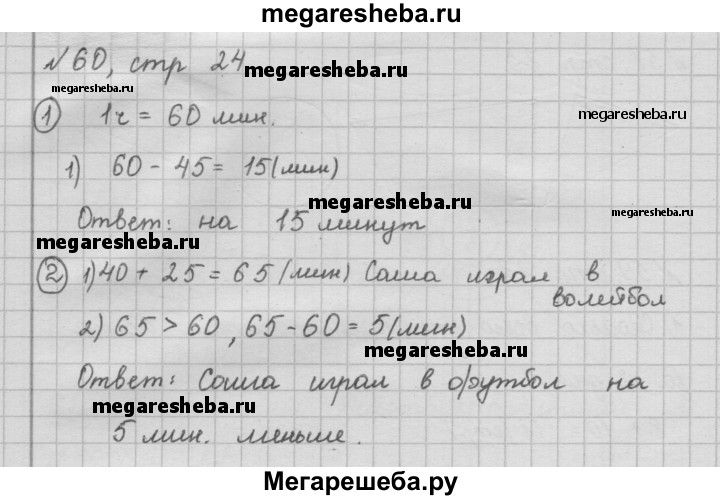 megaresheba.ru
№ 60, стр 24
megaresheba.ru
megaresheba.ru
megaresheba.ru
1 1ч = 60 мин.
1) 60 - 45 = 15 (мин)
megaresheba.ru
Ответ: на 15 минут
megaresheba.ru
2 1) 40 + 25 = 65 (мин) Саша играл в
волейбол
2) 65 > 60, 65 - 60 = 5 (мин)
megaresheba.ru
Ответ: Саша играл в футбол на
megaresheba.ru
5 мин. меньше.
Мегарешеба.ру